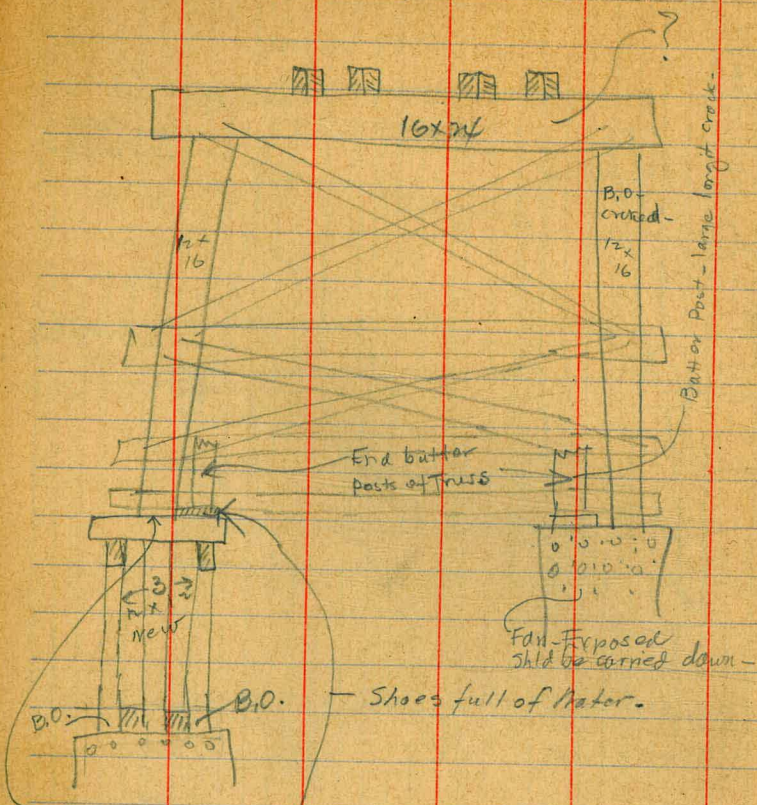 ?
16 x 24
12 x
16
B.O-
crcked-
12
x
16
Batter Post - large longit crack-
End batter
posts of Truss
3
x
new
Fdn-Exposed
Shld be carried down-
B.O.
B.O.
Shoes full of Water.